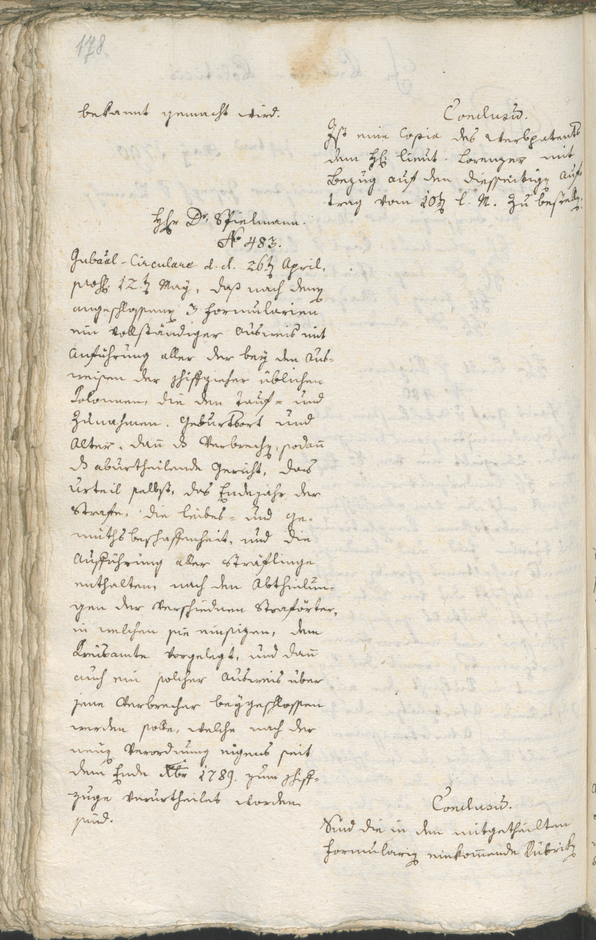 178.
bekannt gemacht wird.
Conclusum.
Ist eine Copia des Werbpatents
dem H. Lieut. Lorenzer mit
Bezug auf den diesseitigen Auf-
trag vom 10t l. M. zu bestelln.
Hhr Dr. Spielmann.
No 483.
Gubal-Circulare d. d. 26t April,
12t May, daß nach denen
angeschlossenen 3 Formularien
ein vollständiger Ausweis mit
Anführung aller der bey den Aus-
weisen der Schiffzieher üblichen
Colonnen, die den Tauf- und
Zunahmen, Geburtsort und
Alter, dann d Verbrechen, sodann
d aburtheilende Gericht, das
Urteil selbst, das Endejahr der
Strafe, die Leibes- und Ge-
müthsbeschaffenheit, und die
Aufführung aller Sträflinge
enthalten, nach den Abtheilun-
gen der verschiedenen Straförter,
in welchen sie einsitzen, dem
Kreisamte vorgelegt, und dann
auch ein solcher Ausweis über
jene Verbrecher beygeschlossen
werden solle, welche nach der
neuen Verordnung eigens seit
dem Ende Xbr 1789. zum Schiff-
zuge verurtheilet worden
sind.
Conclusum.
Sind die in den mitgetheilten
Formularien einkommende Rubriken